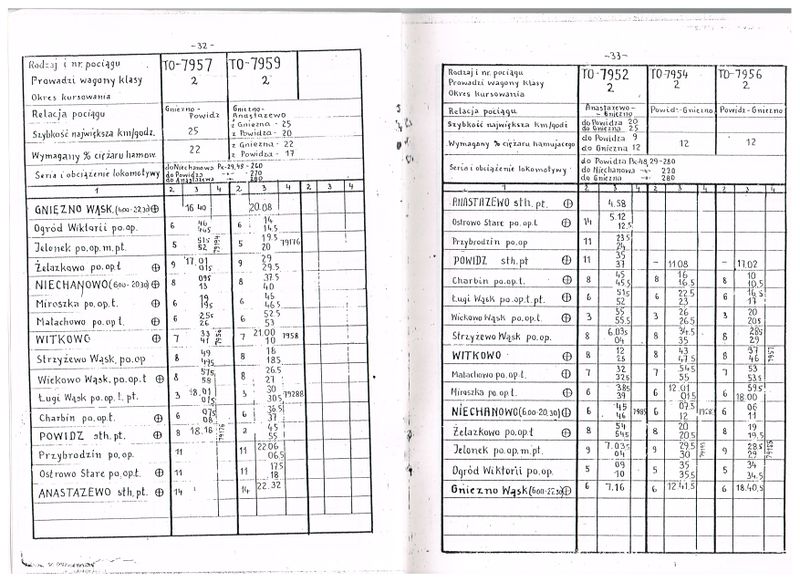 -32-
Rodzaj i nr pociągu TO-7957 TO-7959
Prowadzi wagony klasy 2 2
Okres kursowania
Relacja pociągu Gniezno - Powidz Gniezno - Anastazewo
Szybkość największa km/godz. 25 z Gniezna - 25 z Powidza - 20
Wymagany % ciężaru hamow. 22 z Gniezna - 22 z Powidza - 17
Seria i obciążenie lokomotywy do Niechanowa Px-29,48 - 260
do Powidza - 220
do Anastazewa 280
1 2 3 4 2 3 4 2 3 4
GNIEZNO WĄSK. (600-2230) 16 40 20.08
Ogród Wiktorii po.op. 6 46 6 14 14.5
Jelonek po.op.m.pt. 5 515 52 5 19.5 20 79176
Żelazkowo po.op.t 9 17.01 015 9 29 29.5
NIECHANOWO (600-2030) 8 095 13 8 37.5 40
Miroszka po.op.t. 6 19 195 6 46 46.5
Małachowo po.op.t 6 255 26 6 52.5 53
WITKOWO 7 33 41 7 21.00 10 7958
Strzyżewo Wąsk. po.op 8 49 495 8 18 18.5
Wiekowo Wąsk. po.op.t 8 575 58 8 26.5 27
Ługi Wąsk po.op.t. pt. 3 18.01 015 3 30 305 79288
Charbin po.op.t. 6 075 08 6 36.5 37
POWIDZ sth. pt. 8 18.16 2 45 55
Przybrodzin po.op. 11 11 22.06 06.5
Ostrowo Stare po.op.t. 11 11 175 18
ANASTAZEWO sth. pt. 14 14 22.32
-33-
Rodzaj i nr. pociągu TO-7952 TO-7954 TO-7956
Prowadzi wagony klasy 2 2 2
Okres kursowania
Relacja pociągu Anastazewo - Gniezno Powidz-Gniezno Powidz-Gniezno
Szybkość największa km/godz do Powidza 20 do Gniezna 25
Wymagany % ciężaru hamującego do Powidza 9 do Gniezna 12 12 12
Seria i obciążenie lokomotywy do Powidza Px48,29-280
do Niechanowa - 220
do Gniezna 280
1 2 3 4 2 3 4 2 3 4
ANASTAZEWO sth. pt. 4.58
Ostrowo Stare po.op.t 14 5.12 12.5
Przybrodzin po.op 11 23.5 24
POWIDZ sth.pt 11 35 37 - 11.08 - 17.02
Charbin po.op.t. 8 45 45.5 8 16 16.5 8 10 10.5
Ługi Wąsk po.op.t.pt. 6 515 52 6 22.5 23 6 16.5 17
Wiekowo Wąsk po.op.t 3 55 55.5 3 26 26.5 3 20 205
Strzyżewo Wąsk po.op. 8 6.035 04 8 34.5 35 8 285 29
WITKOWO 8 12 25 8 43 47.5 8 37 46 7957
Małachowo po.op.t 7 32 325 7 54.5 55 7 53 53.5
Miroszka po.op.t. 6 385 39 6 12.01 01.5 6 59.5 18.00
NIECHANOWO (600-20.30) 6 45 46 6 07.5 12 6 06 11
Żelazkowo po.op.t 8 54 545 8 20 20.5 8 19 19.5
Jelonek po.op.m.pt. 9 7.035 04 9 29.5 30 9 285 29
Ogród Wiktorii po.op. 5 09 10 5 35 35.5 5 34 34.5
Gniezno Wąsk (600-2230) 6 7.16 6 12 41.5 6 18.40,5